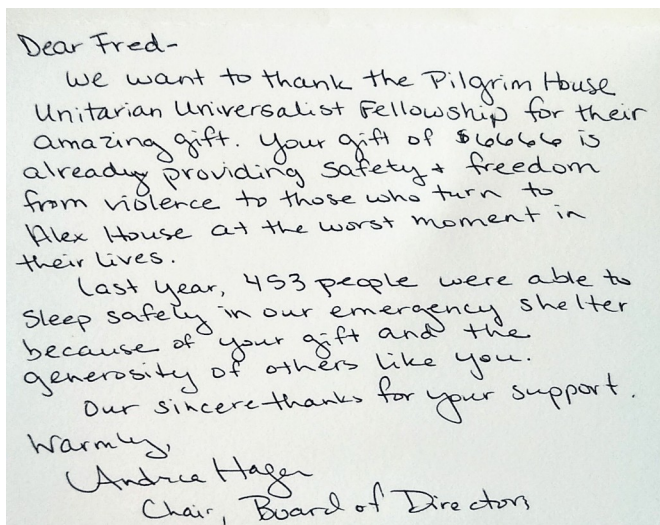 Dear Fred-
We want to thank the Pilgrim House
Unitarian Universalist Fellowship for their
amazing gift. Your gift of $6666 is
already providing safety + freedom
from violence to those who turn to
Alex House at the worst moment in
their lives.
Last year, 453 people were able to
sleep safely in our emergency shelter
because of your gift and the
generosity of others like you.
Our sincere thanks for your support.
Warmly,
Andrea Hagen
Chair, Board of Directors